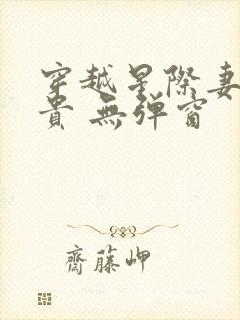 穿越星際妻
貴 無彈窗
齋藤岬